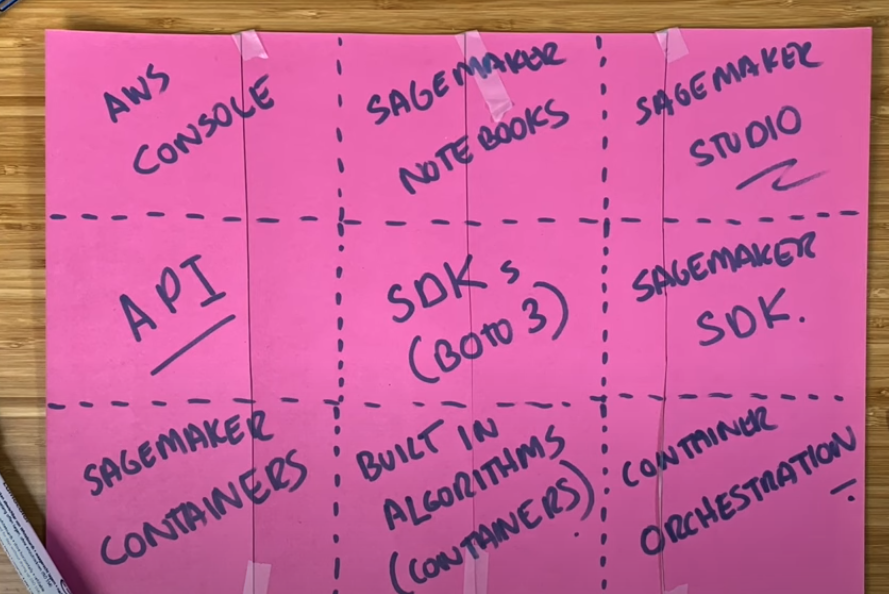 AWS
CONSOLE
SAGEMAKER
NOTEBOOKS
SAGEMAKER
STUDIO
API
SDKs
(BOTO 3)
SAGEMAKER
SDK.
SAGEMAKER
CONTAINERS
BUILT IN
ALGORITHMS
(CONTAINERS).
CONTAINER
ORCHESTRATION